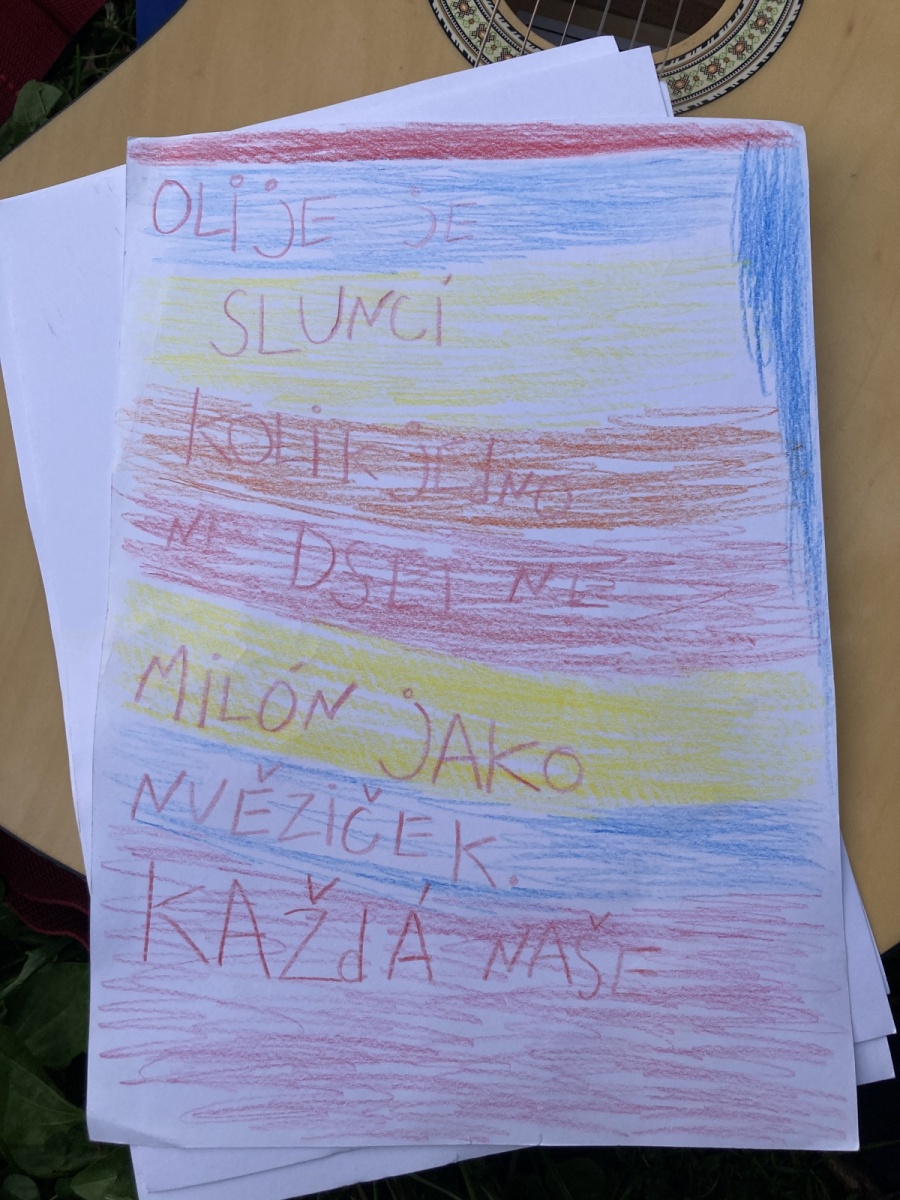 OLiJE JE
SLUNCÍ
KOLiK JEJNO
NE DSET NE
MiLÓN JAKO
NVĚZiČEK.
KAŽdÁ NAŠE